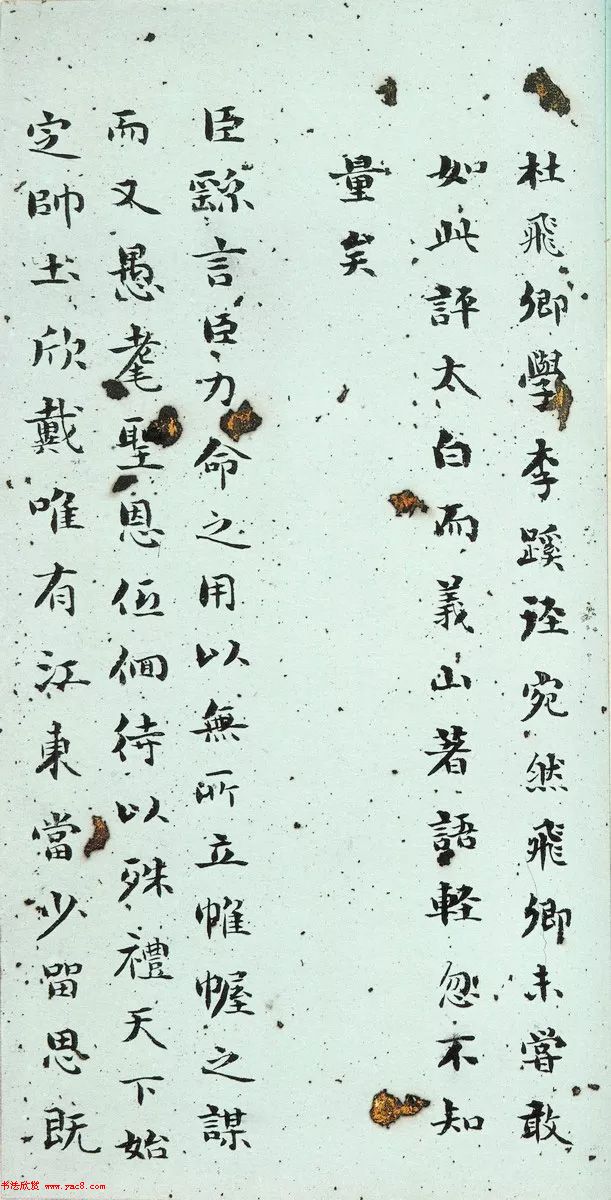 杜飛卿學李蹊徑宛然飛卿未嘗敢
如此評太白而義山著語軽忽不知
量矣
臣繇言臣力命之用以無所立帷幄之謀
而又愚耄聖恩低佪待以殊禮天下始
定帥土欣戴唯有江東當少留思既
书法欣赏 www.yac8.com